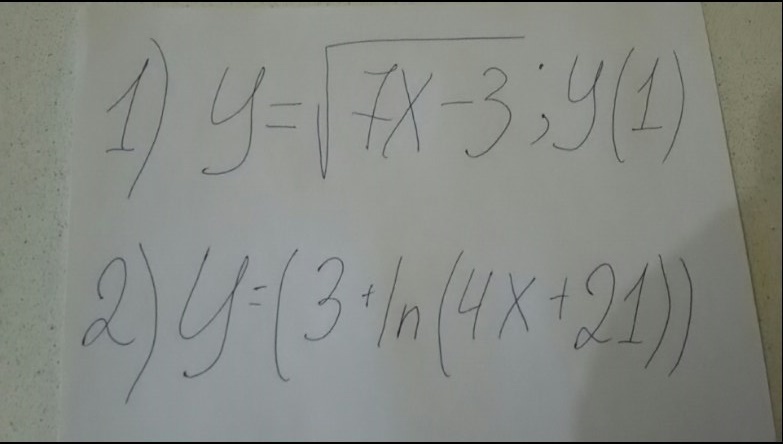 1) y=√7x-3; y(1)
2) y=(3+ln(4x+21))